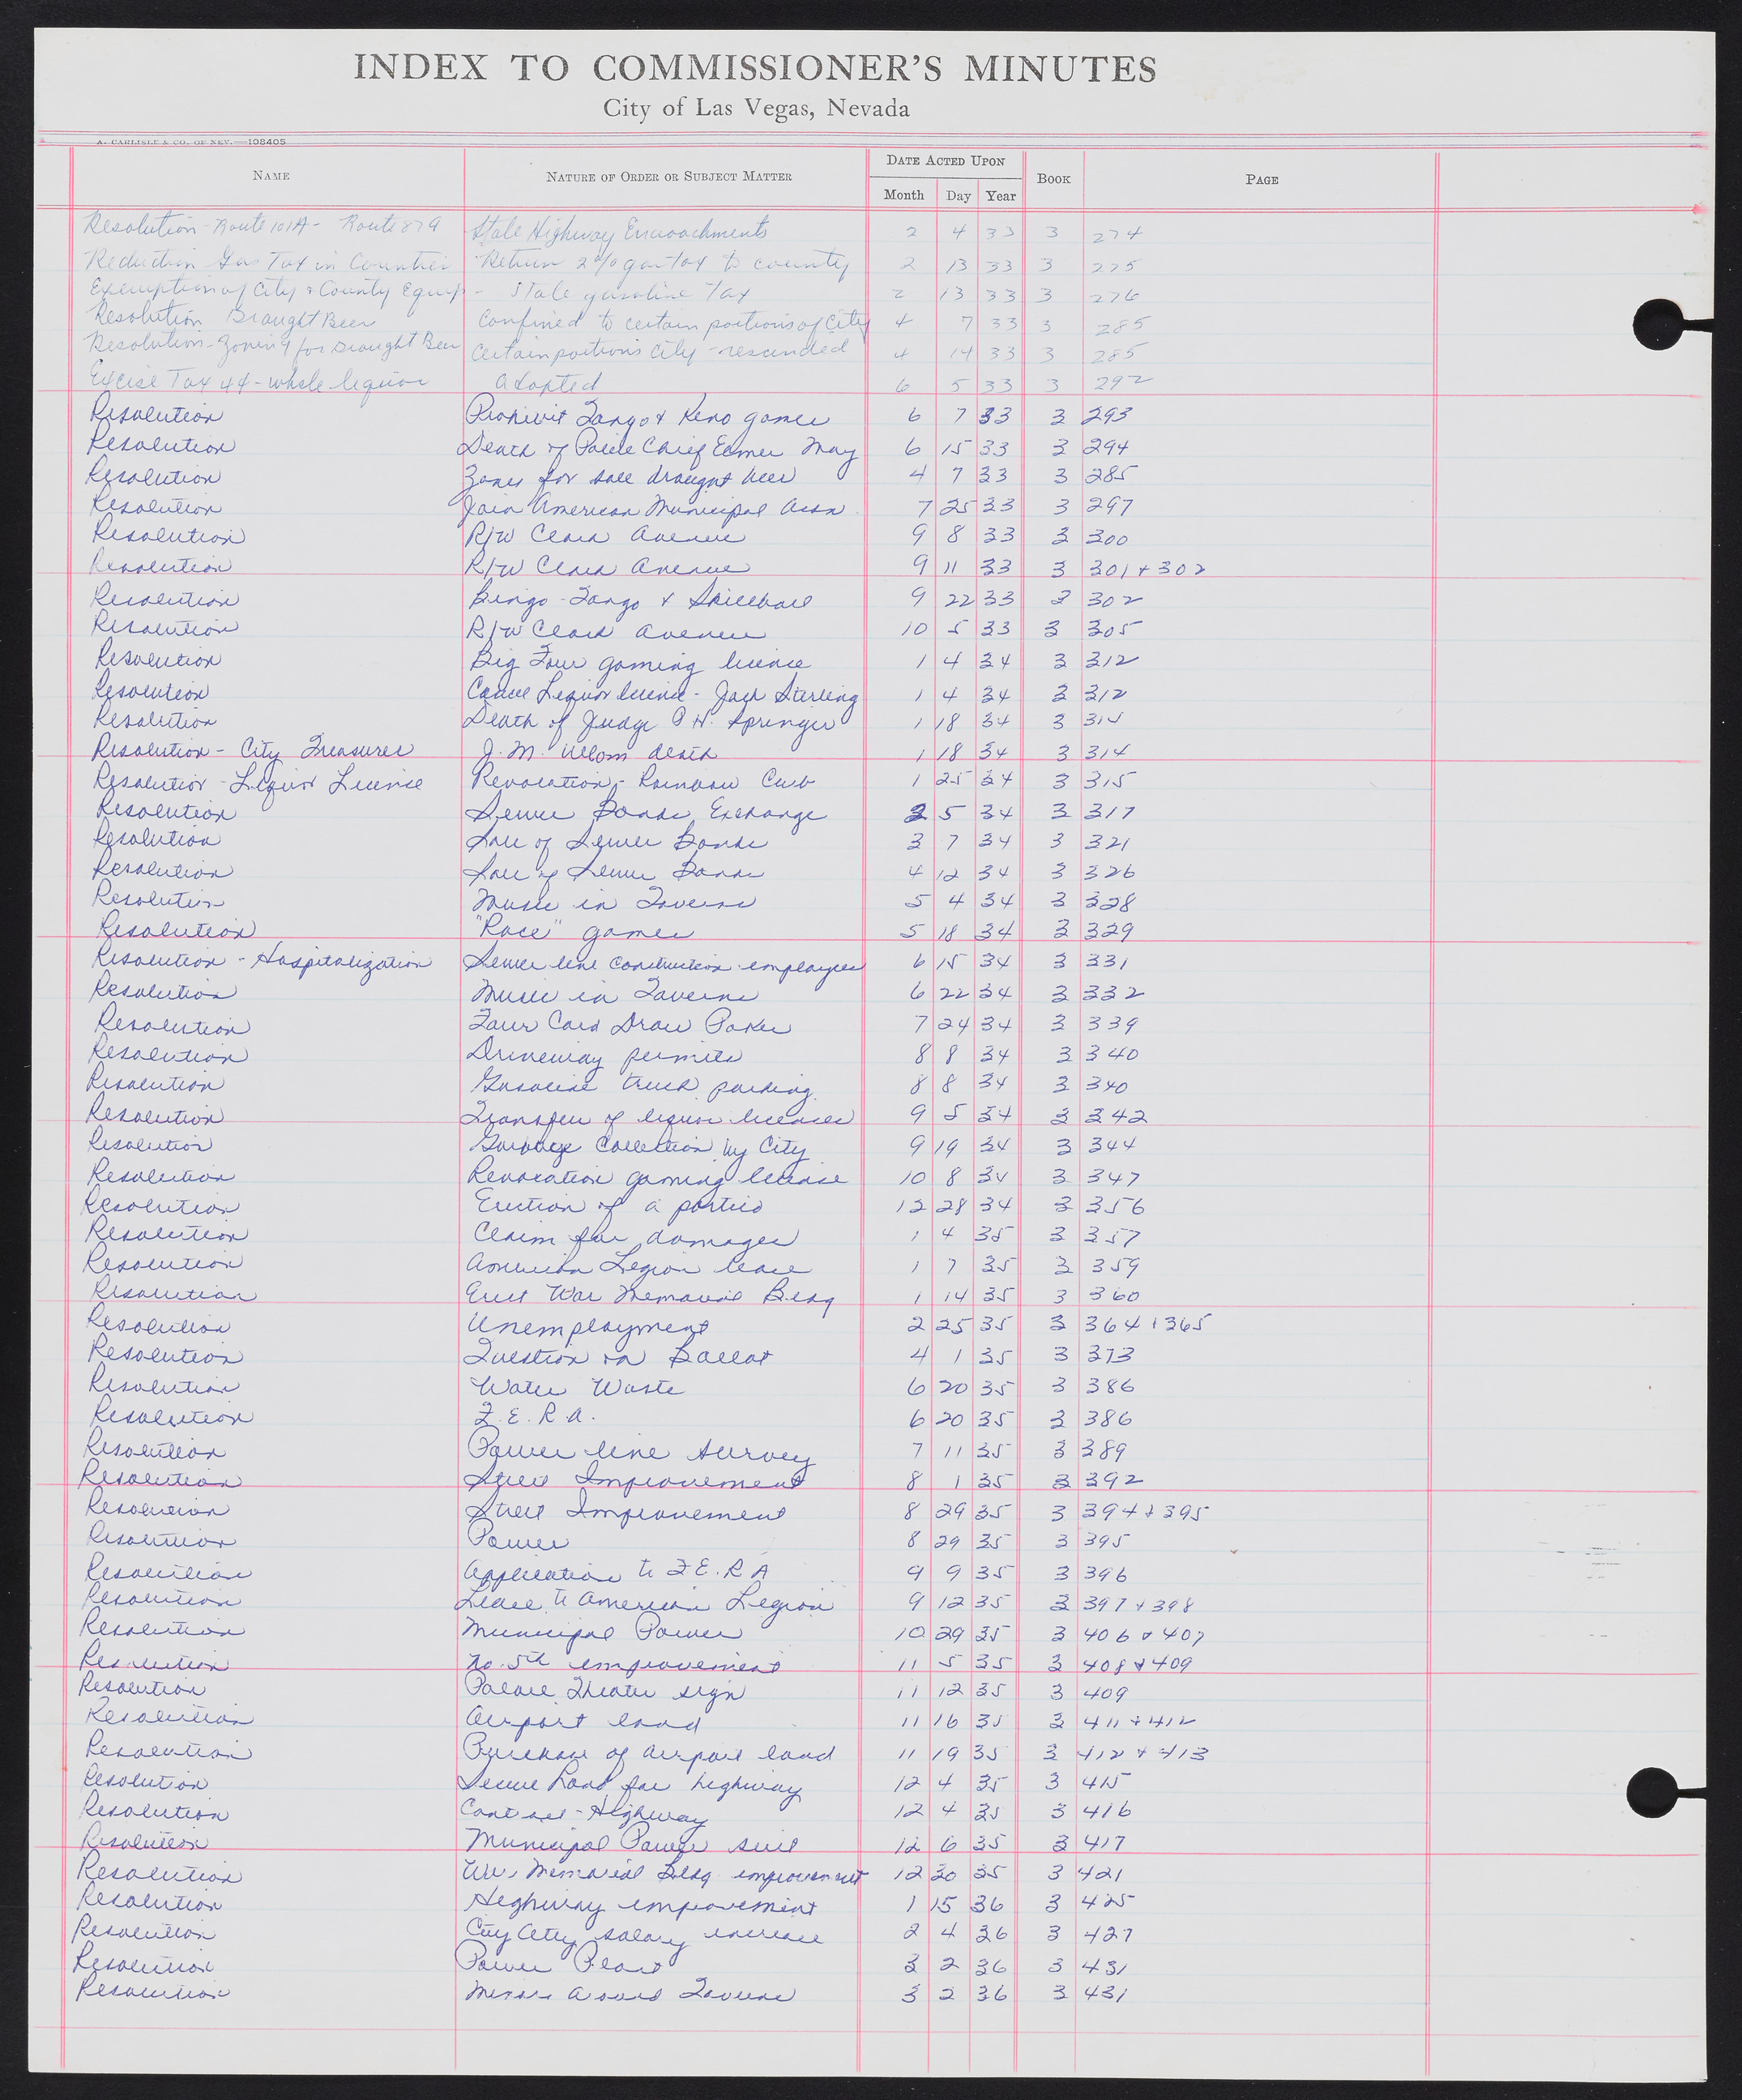 INDEX TO COMMISSIONER'S MINUTES
City of Las Vegas, Nevada
A. CARLISLE & CO. OF NEV.—108405
NAME NATURE OF ORDER OR SUBJECT MATTER DATE ACTED UPON BOOK PAGE
Month Day Year
Resolution - Route 101A - Route 87A State Highway Encroachments 2 4 33 3 274
Reduction Gas Tax in Counties Return 2% gas tax to county 2 13 33 3 275
Exemption of City & County Equip - State gasoline Tax 2 13 33 3 276
Resolution Draught Beer Confined to certain portions of City 4 7 33 3 285
Resolution - Zoning for Draught Beer Certain portions City - rescinded 4 14 33 3 285
Excise Tax 4¢ - whole liquor adopted 6 5 33 3 292
Resolution Prohibit Tango & Keno games 6 7 33 3 293
Resolution Death of Police Chief Elmer May 6 15 33 3 294
Resolution Zones for sale draught beer 4 7 33 3 285
Resolution Join American Municipal Assn. 7 25 33 3 297
Resolution R/W Clark Avenue 9 8 33 3 300
Resolution R/W Clark Avenue 9 11 33 3 301 + 302
Resolution Bingo - Tango & Skillball 9 22 33 3 302
Resolution R/W Clark Avenue 10 5 33 3 305
Resolution Big Four gaming license 1 4 34 3 312
Resolution Cancel Liquor license - Jack Sterling 1 4 34 3 312
Resolution Death of Judge Springer 1 18 34 3 314
Resolution - City Treasurer J. M. Ullom death 1 18 34 3 314
Resolution - Liquor License Revocation - Rainbow Club 1 25 34 3 315
Resolution Sewer Bonds Exchange 2 5 34 3 317
Resolution Sale of Sewer Bonds 3 7 34 3 321
Resolution Sale of Sewer Bonds 4 12 34 3 326
Resolution Music in Taverns 5 4 34 3 328
Resolution "Race" games 5 18 34 3 329
Resolution - Hospitalization Sewer line construction employees 6 15 34 3 331
Resolution Music in Taverns 6 22 34 3 332
Resolution Four Card Draw Poker 7 24 34 3 339
Resolution Driveway permits 8 8 34 3 340
Resolution Gasoline truck parking 8 8 34 3 340
Resolution Transfer of liquor licenses 9 5 34 3 342
Resolution Garbage Collection by City 9 19 34 3 344
Resolution Revocation gaming license 10 8 34 3 347
Resolution Erection of a portico 12 28 34 3 356
Resolution Claim for damages 1 4 35 3 357
Resolution American Legion lease 1 7 35 3 359
Resolution Erect War Memorial Bldg 1 14 35 3 360
Resolution Unemployment 2 25 35 3 364 + 365
Resolution Question on Ballot 4 1 35 3 373
Resolution Water Waste 6 20 35 3 386
Resolution F. E. R. A. 6 20 35 3 386
Resolution Power line survey 7 11 35 3 389
Resolution Street Improvement 8 1 35 3 392
Resolution Street Improvement 8 29 35 3 394 + 395
Resolution Power 8 29 35 3 395
Resolution Application to F. E. R. A 9 9 35 3 396
Resolution Lease to American Legion 9 12 35 3 397 + 398
Resolution Municipal Power 10 29 35 3 406 & 407
Resolution No. 5th improvement 11 5 35 3 408 & 409
Resolution Palace Theater sign 11 12 35 3 409
Resolution Airport land 11 16 35 3 411 + 412
Resolution Purchase of airport land 11 19 35 3 412 + 413
Resolution Secure Land for highway 12 4 35 3 415
Resolution Contract - Highway 12 4 35 3 416
Resolution Municipal Power suit 12 6 35 3 417
Resolution War Memorial Bldg improvement 12 20 35 3 421
Resolution Highway improvement 1 15 36 3 425
Resolution City Atty salary increase 2 4 36 3 427
Resolution Power Plant 3 2 36 3 431
Resolution Taverns 3 2 36 3 431